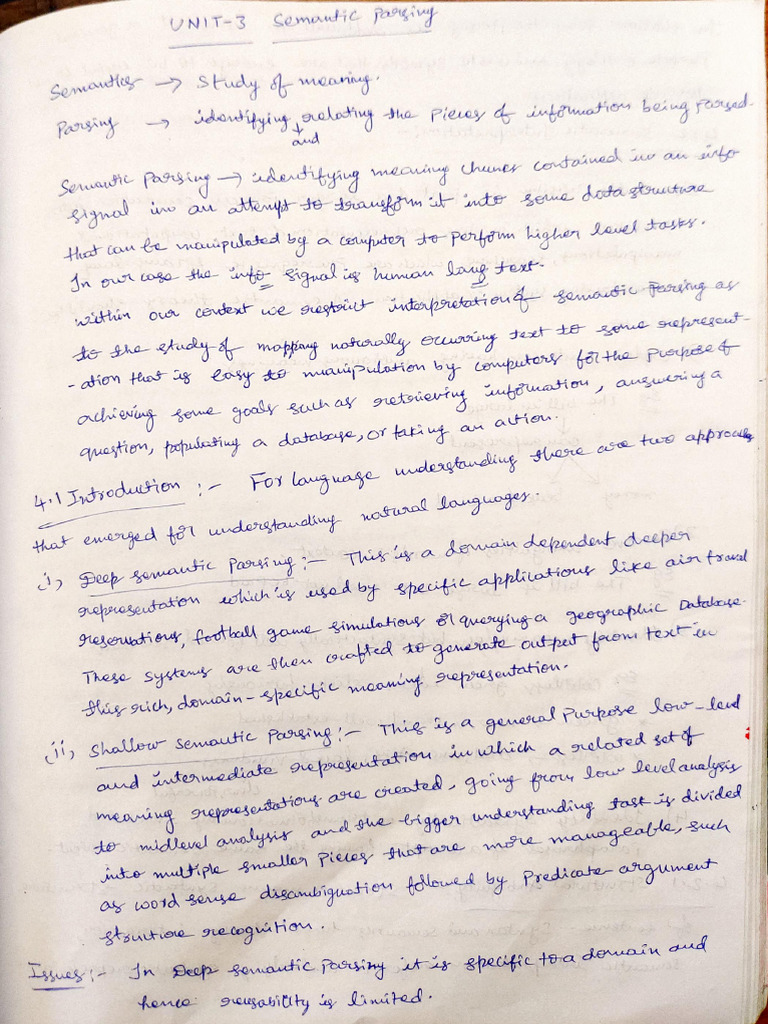 UNIT-3 Semantic Parsing
Semantics → Study of meaning.
Parsing → identifying relating the pieces of information being Parsed.
and
Semantic Parsing → identifying meaning chunks contained in an info
signal in an attempt to transform it into some data struture
that can be manipulated by a computer to perform higher level tasks.
In our case the info signal is human lang text.
within our context we restrict interpretation of semantic Parsing as
to the study of mapping naturally occurring text to some represent-
-ation that is easy to manipulation by computers for the purpose of
achieving some goals such as retrieving information, answering a
question, populating a database, or taking an action.
4.1 Introduction :- For language understanding there are two approaches
that emerged for understanding natural languages.
i, Deep semantic Parsing :- This is a domain dependent deeper
representation which is used by specific applications like air travel
reservations, football game simulations or querying a geographic Database.
These systems are then crafted to generate output from text in
this rich, domain-specific meaning representation.
ii, Shallow Semantic Parsing :- This is a general Purpose low-level
and intermediate representation in which a related set of
meaning representations are created, going from low level analysis
to midlevel analysis and the bigger understanding task is divided
into multiple smaller pieces that are more manageable, such
as word sense disambiguation followed by Predicate argument
structure recognition.
Issues :- In Deep semantic Parsing it is specific to a domain and
hence reusability is limited.